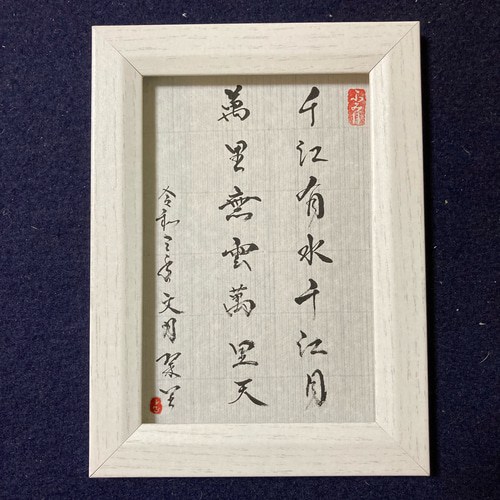 千江有水千江月
萬里無雲萬里天
令和三年文月
ふみ月